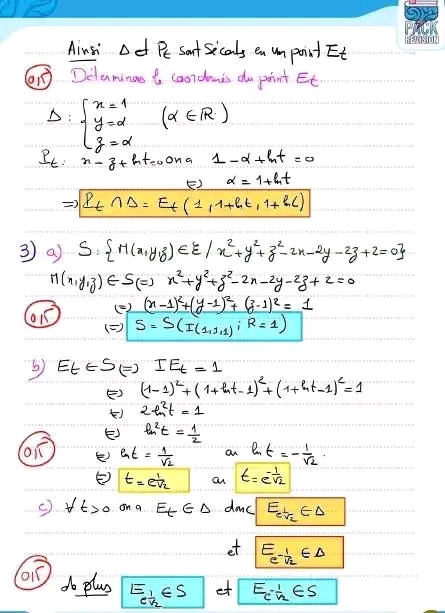 PACK
REVISION
Ainsi Δ et Pt sont sécants en un point Et
0,5 Déterminons le coordonnés du point Et
Δ : { x = 1
y = α (α ∈ ℝ)
z = α
Pt : x - z + ln t = 0 on a 1 - α + ln t = 0
⇔ α = 1 + ln t
⇒ Pt ∩ Δ = Et (1, 1+ln t, 1+ln t)
3) a) S : {M(x,y,z) ∈ ℰ / x² + y² + z² - 2x - 2y - 2z + 2 = 0}
M(x,y,z) ∈ S ⇔ x² + y² + z² - 2x - 2y - 2z + 2 = 0
⇔ (x-1)² + (y-1)² + (z-1)² = 1
0,5 ⇔ S = S(I(1,1,1) ; R = 1)
b) Et ∈ S ⇔ IEt = 1
⇔ (1-1)² + (1+ln t-1)² + (1+ln t-1)² = 1
⇔ 2 ln²t = 1
⇔ ln²t = 1/2
0,5 ⇔ ln t = 1/√2 ou ln t = -1/√2.
⇔ t = e^(1/√2) ou t = e^(-1/√2)
c) ∀ t > 0 on a Et ∈ Δ donc E_e^(1/√2) ∈ Δ
et E_e^(-1/√2) ∈ Δ
0,5 de plus E_e^(1/√2) ∈ S et E_e^(-1/√2) ∈ S